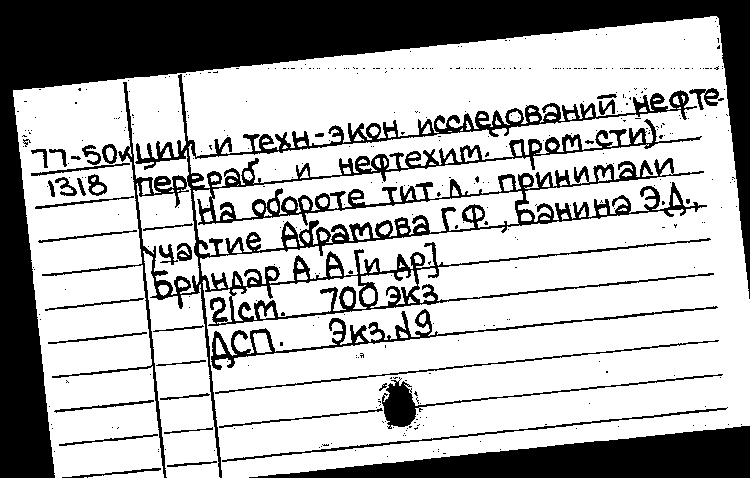 77-50к ции и техн.-экон. исследований нефте-
1318 перераб. и нефтехим. пром-сти).
На обороте тит. л.: принимали
участие Абрамова Г.Ф., Банина Э.Д.,
Бриндар А.А. [и др].
21 ст. 700 экз
ДСП. Экз. №9